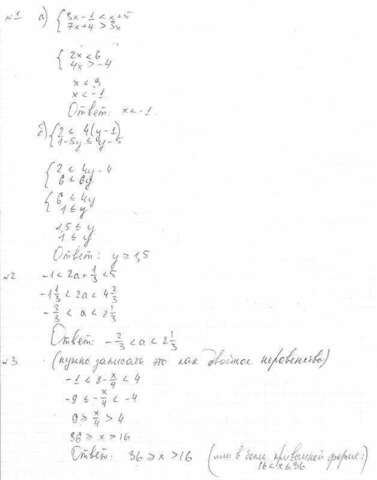 №1 а) { 3x-1 < x+5
7x+4 > 3x
{ 2x < 6
4x > -4
x < 3
x < -1
Ответ: x < -1.
б) { 2 ≤ 4(y-1)
1-5y ≤ y-5
{ 2 ≤ 4y-4
6 ≤ 6y
{ 6 ≤ 4y
1 ≤ y
1,5 ≤ y
1 ≤ y
Ответ: y ≥ 1,5
№2 -1 < 2a + 1/3 < 5
-1 1/3 < 2a < 4 2/3
-2/3 < a < 2 1/3
Ответ: -2/3 < a < 2 1/3
№3. (нужно записать это как двойное неравенство)
-1 ≤ 8 - x/4 < 4
-9 ≤ -x/4 < -4
9 ≥ x/4 > 4
36 ≥ x > 16
Ответ: 36 ≥ x > 16 (или в более привычной форме:
16 < x ≤ 36